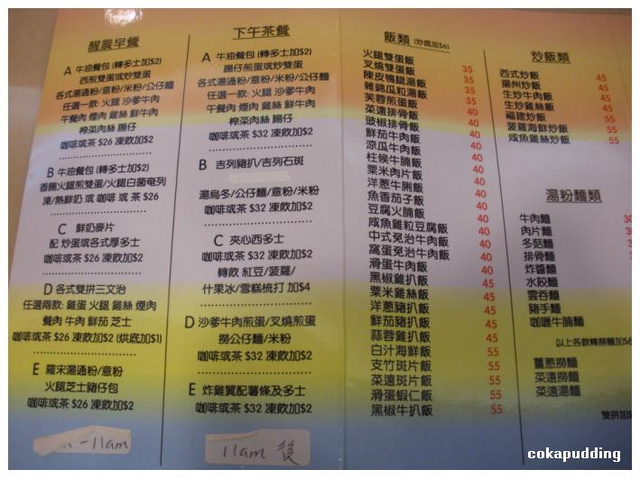 醒晨早餐
A 牛油餐包 (轉多士加$2)
西煎雙蛋或炒雙蛋
各式湯通粉/意粉/米粉/公仔麵
任選一款: 火腿 沙爹牛肉
午餐肉 煙肉 雞絲 鮮牛肉
榨菜肉絲 腸仔
咖啡或茶 $26 凍飲加$2
B 牛油餐包 (轉多士加$2)
香團火腿煎雙蛋/火腿白菌奄列
凍/熱鮮奶 或 咖啡 或 茶 $26
C 鮮奶麥片
配 炒蛋或各式厚多士
咖啡或茶 $26 凍飲加$2
D 各式雙拼三文治
任選兩款: 雞蛋 火腿 雞絲 煙肉
餐肉 牛肉 鮮茄 芝士
咖啡或茶 $26 凍飲加$2 (烘底加$1)
E 羅宋湯通粉/意粉
火腿芝士豬仔包
咖啡或茶 $26 凍飲加$2
-11am
下午茶餐
A 牛油餐包 (轉多士加$2)
腸仔煎雙蛋或炒雙蛋
各式湯通粉/意粉/米粉/公仔麵
任選一款: 火腿 沙爹牛肉
午餐肉 煙肉 雞絲 鮮牛肉
榨菜肉絲 腸仔
咖啡或茶 $32 凍飲加$2
B 吉列豬扒/吉列石斑
湯烏冬/公仔麵/意粉/米粉
咖啡或茶 $32 凍飲加$2
C 夾心西多士
咖啡或茶 $32 凍飲加$2
轉飲 紅豆/菠蘿/
什果冰/雪糕梳打 加$4
D 沙爹牛肉煎蛋/叉燒煎蛋
撈公仔麵/米粉
咖啡或茶 $32 凍飲加$2
E 炸雞翼配薯條及多士
咖啡或茶 $32 凍飲加$2
11am 後
飯類 (炒底加$6)
火腿雙蛋飯
叉燒雙蛋飯 35
陳皮鴨腿湯飯 35
雜錦瓜粒湯飯 35
芙蓉煎蛋飯 35
菜遠排骨飯 40
豉椒排骨飯 40
鮮茄牛肉飯 40
涼瓜牛肉飯 40
柱候牛腩飯 40
粟米肉片飯 40
洋蔥牛脷飯 40
魚香茄子飯 40
豆腐火腩飯 40
咸魚雞粒豆腐飯 40
中式免治牛肉飯 40
窩蛋免治牛肉飯 40
滑蛋牛肉飯 40
黑椒雞扒飯 45
粟米雞絲飯 45
洋蔥豬扒飯 45
鮮茄豬扒飯 45
蒜蓉雞扒飯 45
白汁海鮮飯 55
支竹斑片飯 55
菜遠斑片飯 55
滑蛋蝦仁飯 55
黑椒牛扒飯 55
炒飯類
西式炒飯 45
揚州炒飯 45
生炒牛肉飯 45
生炒雞絲飯 45
福建炒飯 55
菠蘿海鮮炒飯 55
咸魚雞絲炒飯 55
湯粉麵類
牛肉麵
肉片麵 30
冬菇麵 30
排骨麵
炸醬麵
水餃麵
雲吞麵
豬手麵
咖喱牛腩麵
以上各款轉撈加$6
薑蔥撈麵
菜遠撈麵
菜遠湯麵
雙拼加$
cokapudding